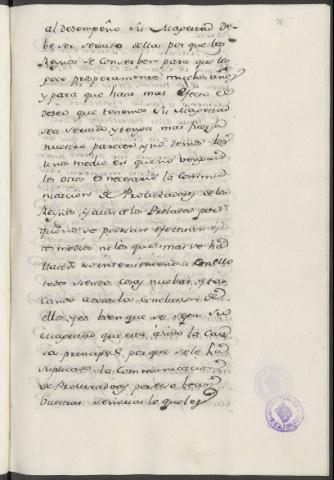 al desempeño su Magestad de-
be ser servido della por que los
Reinos se conserben para que los
goce prosperamente muchos años
y para que haia mas efecto el
deseo que tenemos su Magestad
sea servido y tenga mas
nuestro parecer y no demos los
unos medio en que no bengan
los otros es necesario la comuni-
cacion de Procuradores de los
Reinos, y aun de los Prelados por
que no se podrian efectuar es-
tos medios ni los que mas se ha-
llasen no interviniendo en ello
todos siendo cosas nuebas, y to-
cando a todos la conclusion de
ellos, y es bien que se sepa su
Magestad que esta a sido la cau-
sa principal por que se le ha
suplicado la Communicacion
de Procuradores, por eso bean
buestras señorias lo que les